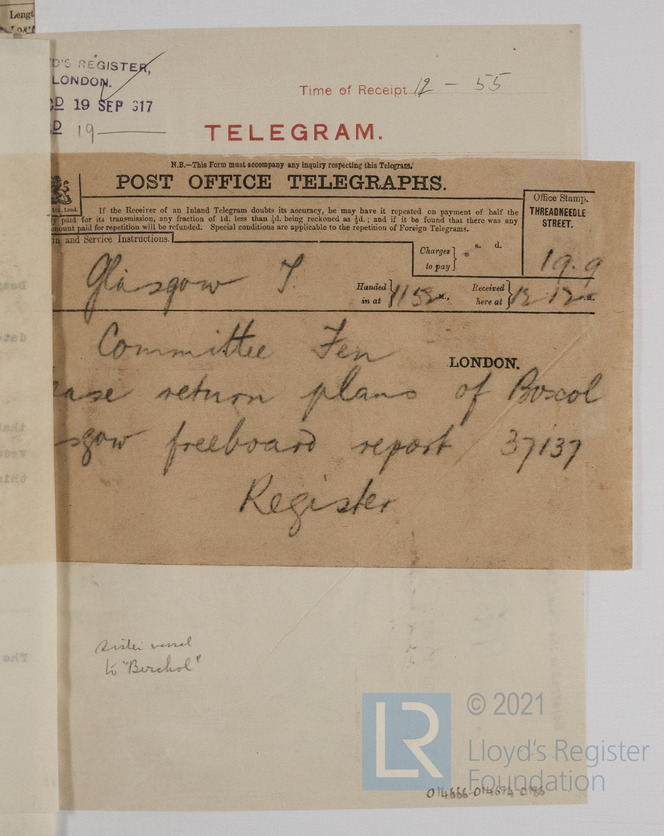 Lengt
D'S REGISTER,
LONDON.
CD 19 SEP 317
D 19
Time of Receipt 12 - 55
TELEGRAM.
N.B.—This Form must accompany any inquiry respecting this Telegram.
POST OFFICE TELEGRAPHS.
If the Receiver of an Inland Telegram doubts its accuracy, he may have it repeated on payment of half the
paid for its transmission, any fraction of 1d. less than ½d. being reckoned as ½d.; and if it be found that there was any
mount paid for repetition will be refunded. Special conditions are applicable to the repetition of Foreign Telegrams.
Office Stamp.
THREADNEEDLE
STREET.
19.9
in and Service Instructions.
Charges to pay s. d.
Glasgow T.
Handed in at 1152
Received here at 12 12
Committee Fen
LONDON.
ease return plans of Boxol
sgow freeboard report 37137
Register
sister vessel
to "Birchol"
The
LR
© 2021
Lloyd's Register
Foundation
014666-014674-0186